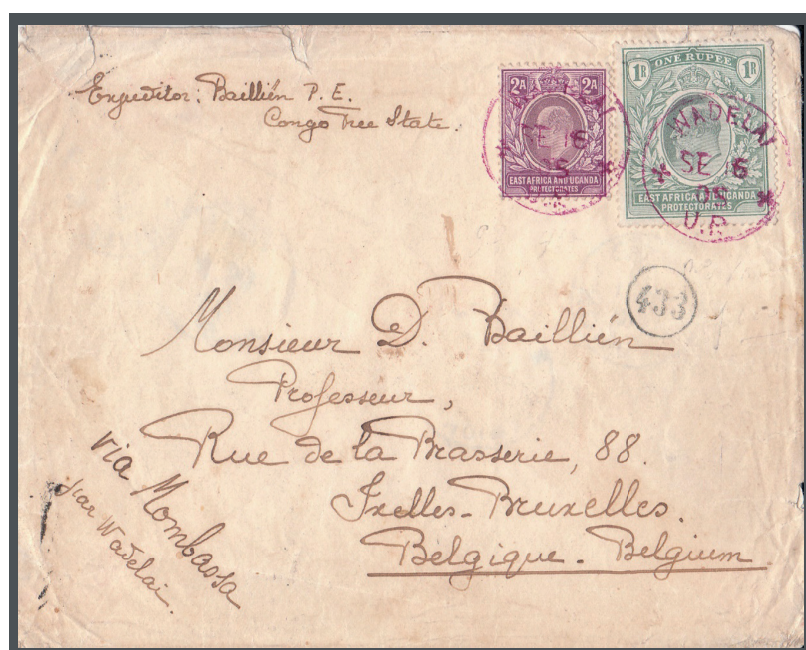 Expeditor: Baillién P. E.
Congo Free State.
2A 2A
EAST AFRICA AND UGANDA
PROTECTORATES
SE 16
05
U.P.
1R ONE RUPEE 1R
EAST AFRICA AND UGANDA
PROTECTORATES
WADELAI
SE 16
05
U.P.
433
Monsieur D. Baillién
Professeur,
Rue de la Brasserie, 88.
Ixelles-Bruxelles.
Belgique. Belgium
via Mombassa
par Wadelai.